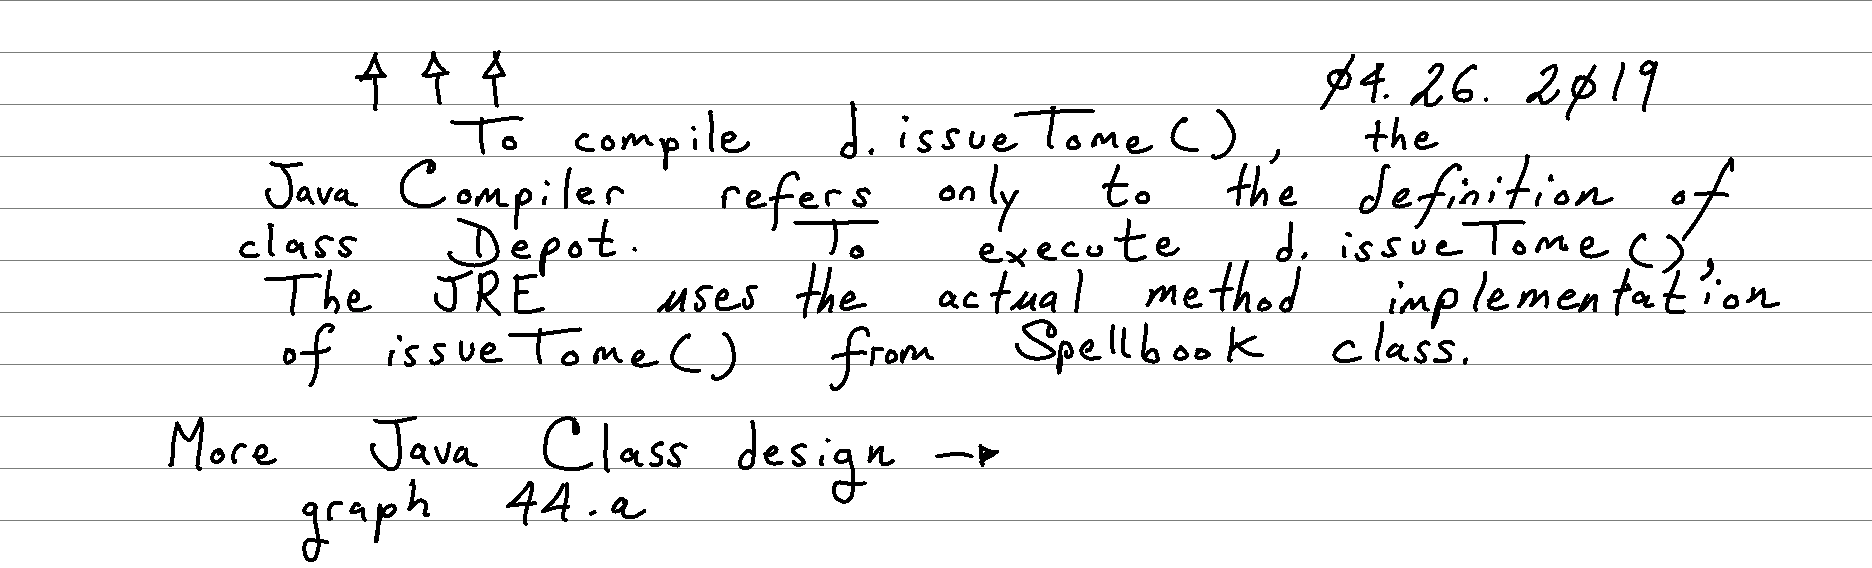 04.26.2019
To compile d.issueTome(), the
Java Compiler refers only to the definition of
class Depot. To execute d.issueTome(),
The JRE uses the actual method implementation
of issueTome() from Spellbook class.
More Java Class design →
graph 44.a